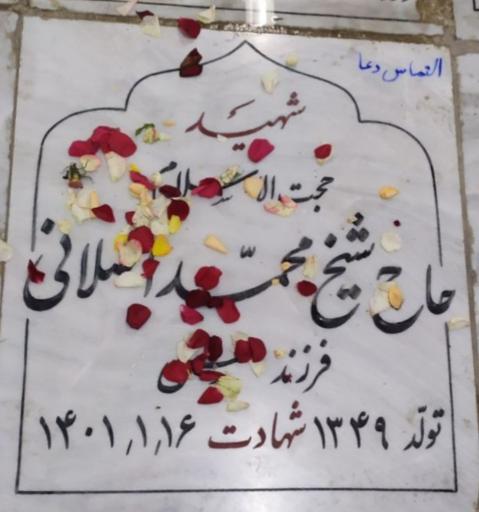 التماس دعا
شهید
حجت الاسلام
حاج شیخ محمد اصلانی
فرزند
تولّد ۱۳۴۹ شهادت ۱۴۰۱٫۱٫۱۶